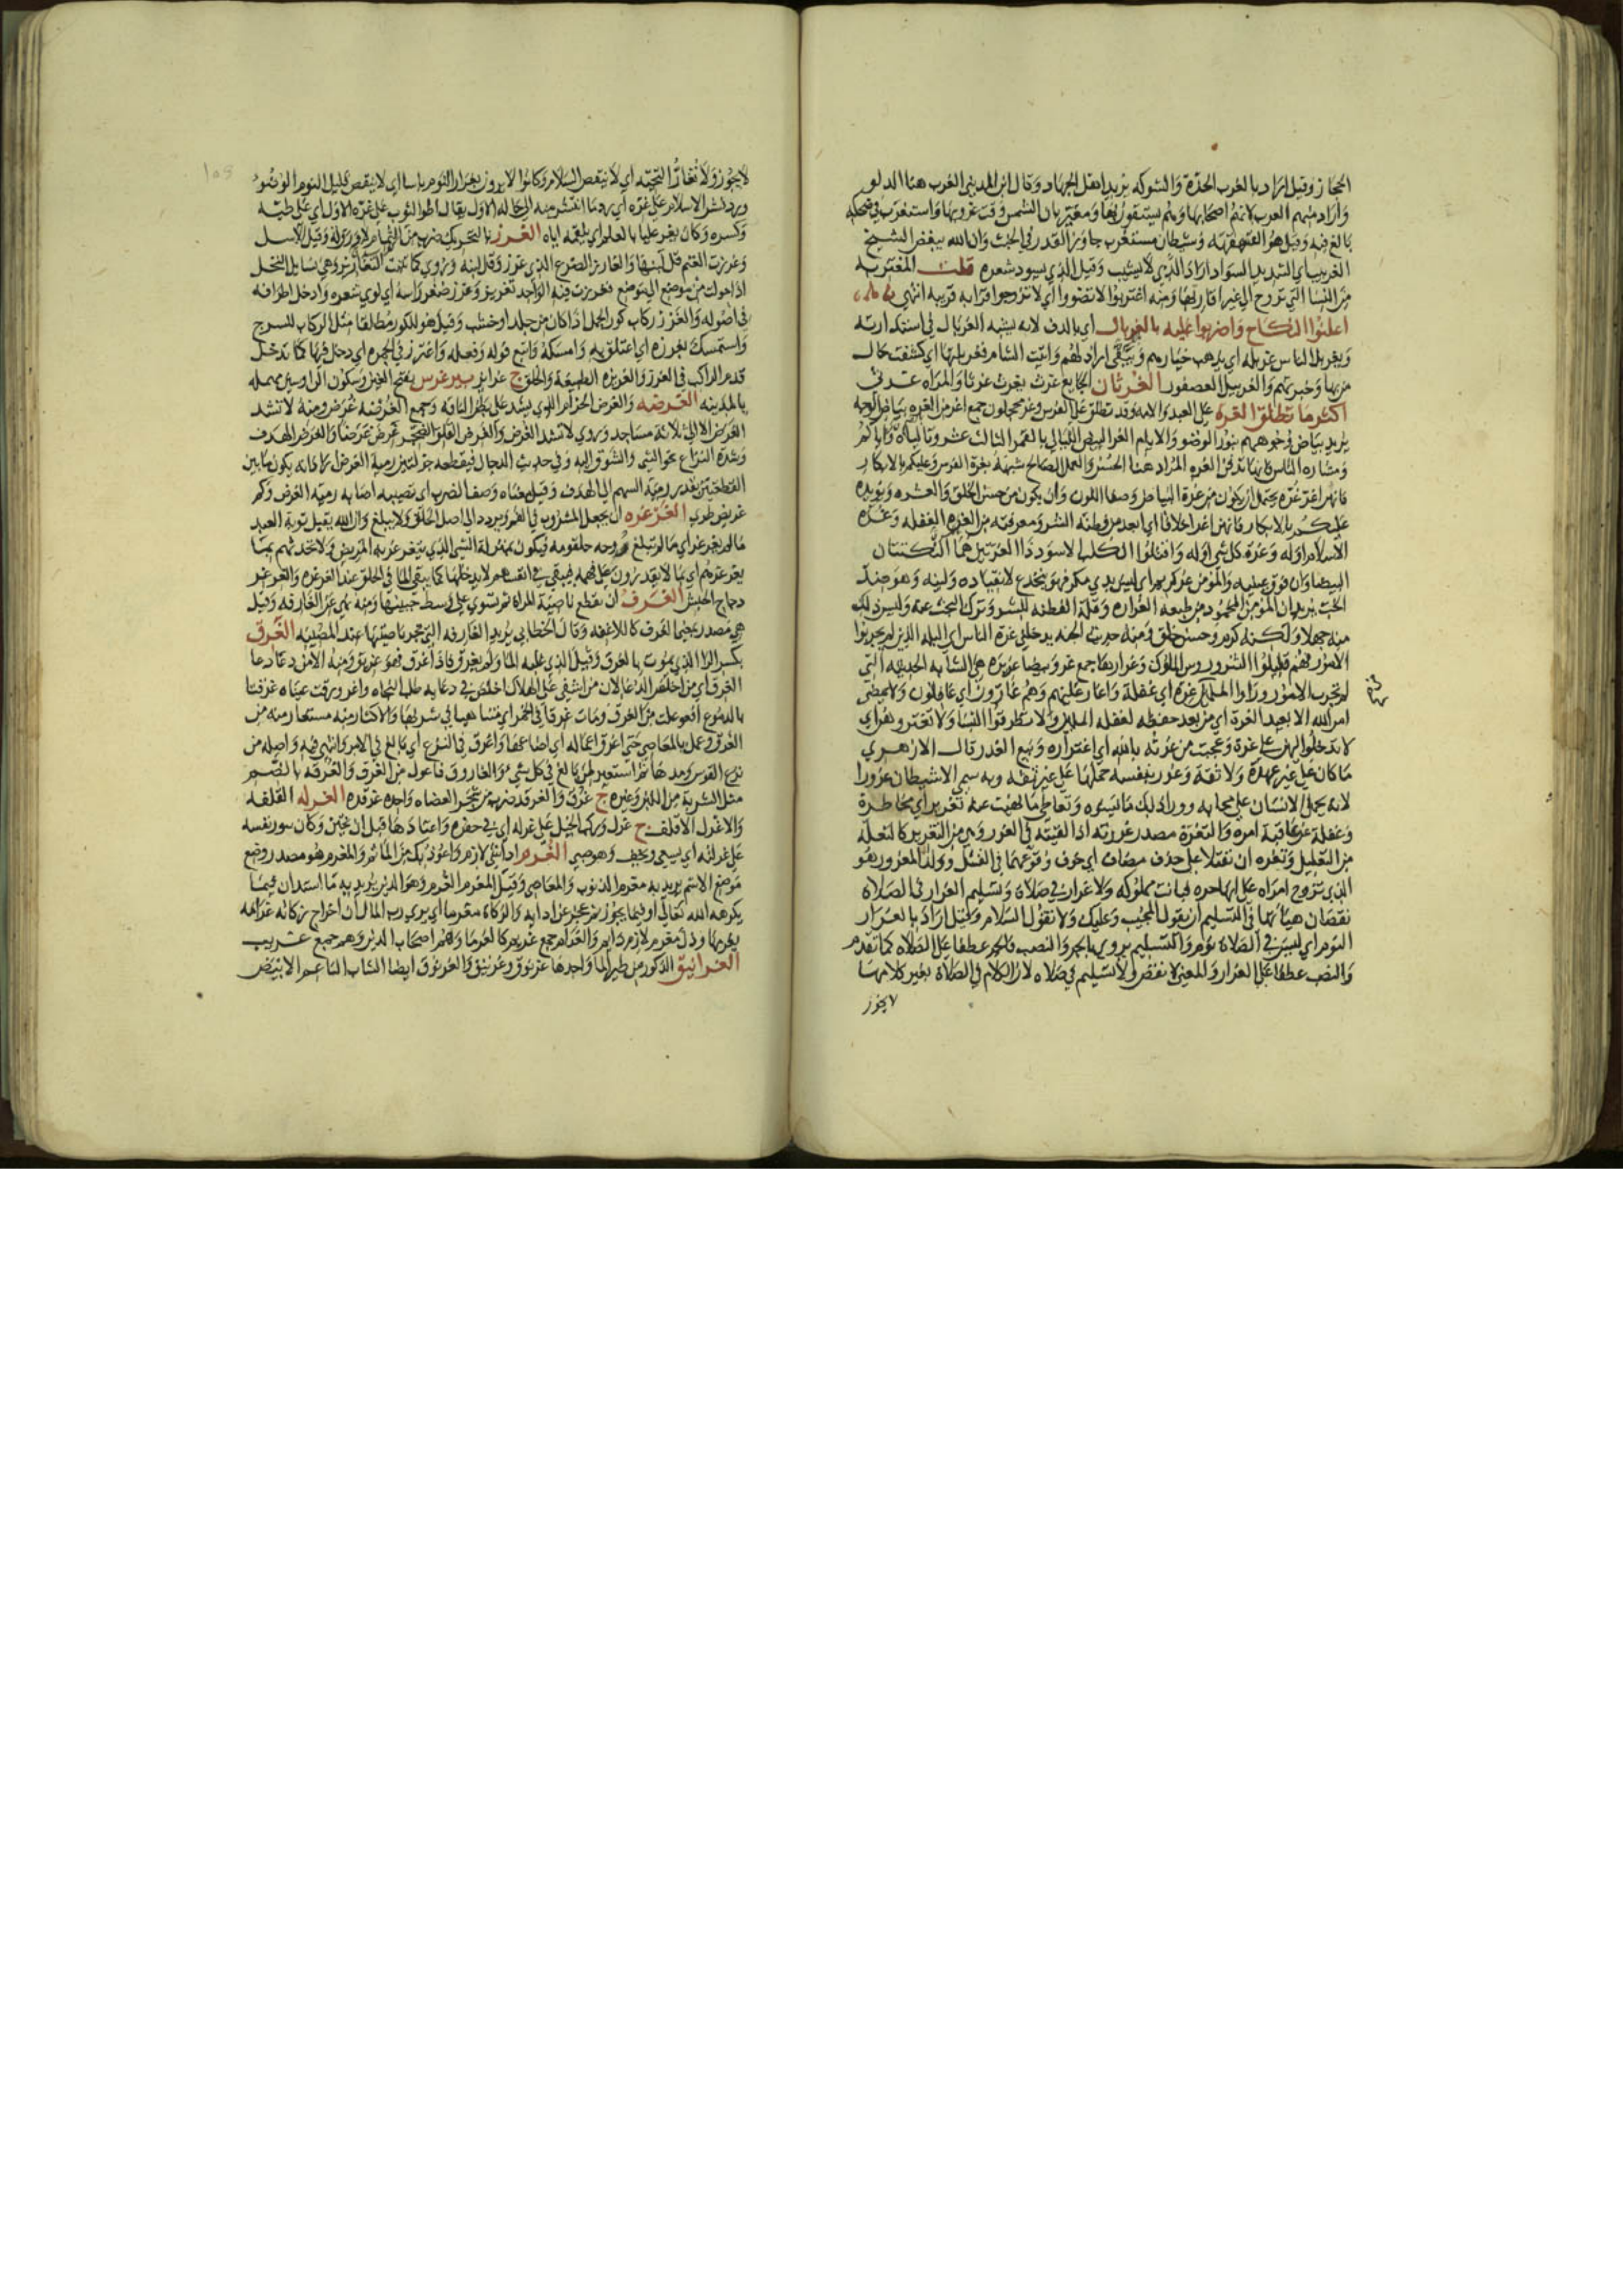 الحجاز وقيل اراد بالغرب الحدة والشوكه يريد اهل الجهاد وقال ابن المديني الغرب هنا الدلو
واراد بهم العرب لانهم اصحابها وهم يستقون بها ومغيربان الشمس وقت غروبها واستغرب في ضحكه
بالغ فيه وقيل هو القهقهه وشيطان مستغرب جاوز القدر في الخبث وان الله يبغض الشيخ
الغربيب اي الشديد السواد اراد الذي لا يشيب وقيل الذي يسود شعره قلت المغتربه
من النسا التي تزوج الي غير اقاربها ومنه اغتربوا لا تضووا اي لا تزوجوا قرابه قريبه انتهي
اعلنوا النكاح واضربوا عليه بالغربال اي بالدف لانه يشبه الغربال في استدارته
ويغربل الناس غربله اي يذهب خيارهم ويبقى ارذلهم واتيت الشام فغربلتها اي كشفت حال
من بها وخبرتهم والغربيل العصفور الغرثان الجايع غرث يغرث غرثا والمراه غرثى
اكثر ما تطلق الغره علي العبد والامه وقد تطلق علي الفرس وغر محجلون جمع اغر من الغره بياض الوجه
يريد بياض وجوههم بنور الوضو والايام الغر البيض الليالي بالقمر الثالث عشر وتالياه واياكم
ومشاره الناس فانها تدفن الغره المراد هنا الحسن والعمل الصالح شبهه بغرة الفرس وعليكم بالابكار
فانهن اغر غره يحتمل ان يكون من غرة البياض وصفا اللون وان يكون من حسن الخلق والعشره ويويده
عليكم بالابكار فانهن اغر اخلاقا اي ابعد من فطنة الشر ومعرفته من الغره الغفله وغره
الاسلام اوله وغرة كل شي اوله واقتلوا الكلب الاسود ذا الغرتين هما النكتتان
البيضاوان فوق عينيه والمومن غر كريم اي ليس بذي مكر فهو ينخدع لانقياده ولينه وهو ضد
الخب يريد ان المومن المحمود من طبعه الغراره وقلة الفطنه للشر وترك البحث عنه وليس ذلك
منه جهلا ولكنه كرم وحسن خلق ومنه حديث الجنه يدخلني غرة الناس اي البله الذين لم يجربوا
الامور فهم قليلوا الشر وروس الملوك وغرارها جمع غر وبيضا غريره هي الشابه الحديثه التي
لم تجرب الامور وراوا المسلمين غره اي غفلة واغار عليهم وهم غارون اي غافلون ولا يمضي
امر الله الا بعيد الغرة اي من بعد حفظه لغفله المسلمين ولا تطرقوا النسا ولا تغتروهن اي
لا تدخلوا اليهن علي غرة وعجبت من غرته بالله اي اغتراره وبيع الغرر قال الازهري
ما كان علي غير عهدة ولا ثقة وغرر بنفسه حملها علي غير ثقه وبه سمي الشيطان غرورا
لانه يحمل الانسان علي محابه وورا ذلك ما يسوه وتعاطي ما نهيت عنه تغريرا اي مخاطرة
وغفلة عن عاقبة امره والتغرة مصدر غررته اذا القيته في الغرر وهي من التغرير كالتعلة
من التعليل وتغره ان يقتلا علي حذف مضاف اي خوف وقوعهما في القتل وولد المغرور هو
الذي تزوج امراه علي انها حره فبانت مملوكه ولا غرار في صلاة وتسليم الغرار في الصلاه
نقصان هيآتها وفي التسليم ان يقول المجيب وعليك ولا تقول السلام وقيل اراد بالغرار
النوم اي ليس في الصلاة نوم والتسليم يروي بالجر والنصب فالجر عطفا علي الصلاه كما تقدم
والنصب عطفا علي الغرار والمعني لا نقص ولا تسليم في صلاه لان الكلام في الصلاة بغير كلامها
لا يجوز
لا يجوز ولا تغار التحيه اي لا ينقص السلام وكانوا لا يرون بغرار النوم باسا اي لا ينقض قليل النوم الوضو
ورد نشر الاسلام علي غره اي رد ما انتشر منه الي حاله الاول يقال اطو الثوب علي غره الاول اي علي طيه
وكسره وكان يغر عليا بالعلم اي يلقمه اياه الغرز بالتحريك ضرب من الثمام لا ورق له وقيل الاسل
وغرزت الغنم قل لبنها والغارز الضرع الذي غرز وقل لبنه وروي كما تنبت التغاريز وهي فسايل النخل
اذا حولت من موضع الي موضع فغرزت فيه الواحد تغريز وغرز ضفر راسه اي لوي شعره وادخل اطرافه
في اصوله والغرز ركاب كور الجمل اذا كان من جلد او خشب وقيل هو للكور مطلقا مثل الركاب للسرج
واستمسك بغرزه اي اعتلق به وامسكه واتبع قوله وفعله واغترز في الحره اي دخل فيها كما تدخل
قدم الراكب في الغرز والغريزه الطبيعة والخلق ج غرايز بير غرس بفتح الغين وسكون الرا وسين مهمله
بالمدينه الغرضه والغرض الحزام الذي يشد علي بطن الناقه وجمع الغرضه غرض ومنه لا تشد
الغرض الا الي ثلاثة مساجد وروي لا تشد الغرض والغرض القلق والضجر غرض غرضا والغرض الهدف
وشدة النزاع نحو الشي والشوق اليه وفي حديث الدجال فيقطعه جزلتين رمية الغرض اراد انه يكون ما بين
القطعتين بقدر رمية السهم الي الهدف وقيل معناه وصف الضرب اي تصيبه اصابه رمية الغرض ولحم
غريض طري الغرغره ان يجعل المشروب في الفم ويردد الي اصل الحلق ولا يبلغ وان الله يقبل توبة العبد
ما لم يغرغر اي ما لم تبلغ روحه حلقومه فيكون بمنزلة الشي الذي يتغرغر به المريض ولا تحدثهم بما
يغرغرهم اي بما لا يقدرون علي فهمه فيبقي في انفسهم لا يدخلها كما يبقي الما في الحلق عند الغرغره والغرغر
دجاج الحبش الغرف ان تقطع ناصية المراة ثم تسوي علي وسط جبينها ومنه نهي عن الغارفه وقيل
هي مصدر بمعني الغرف كاللاغيه وقال الخطابي يريد الغارفه التي تجز ناصيتها عند المصيبه الغرق
بكسر الرا الذي يموت بالغرق وقيل الذي غلبه الما ولم يغرق فاذا غرق فهو غريق ومنه الا من دعا دعا
الغرق اي من اخلص الدعا لان من اشفي علي الهلاك اخلص في دعايه طلب النجاه واغرورقت عيناه غرقتا
بالدموع افعوعلت من الغرق ومات غرقا في الخمر اي متناهيا في شربها والاكثار منه مستعار منه من
الغرق وعمل بالمعاصي حتي اغرق اعماله اي اضاعها واغرق في النزع اي بالغ في الامر وانتهي فيه واصله من
نزع القوس ومدها ثم استعير لمن بالغ في كل شي والغاروق فاعول من الغرق والغرقه بالضم
مثل الشربة من اللبن وغيره ج غرق والغرقد ضرب من شجر العضاه واحده غرقده الغرله القلفه
والاغرل الاقلف ج غرل وركب الخيل علي غرله اي في صغره واعتادها قبل ان يختن وكان يسور نفسه
علي غرلته اي يسعي ويخف وهو صبي الغرم ادا شي لازم واعوذ بك من الماثم والمغرم هو مصدر وضع
موضع الاسم يريد به مغرم الذنوب والمعاصي وقيل المغرم الغرم وهو الدين يريد به ما استدان فيما
يكرهه الله تعالي او فيما يجوز ثم عجز عن ادايه والزكاة مغرما اي يري رب المال ان اخراج زكاته غرامه
يغرمها وذل مغرم لازم دايم والغرام جمع غريم كالغرما وهم اصحاب الدين وهو جمع غريب
الغرانيق الذكور من طير الما واحدها غرنوق وغرنيق والغرنوق ايضا الشاب الناعم الابيض